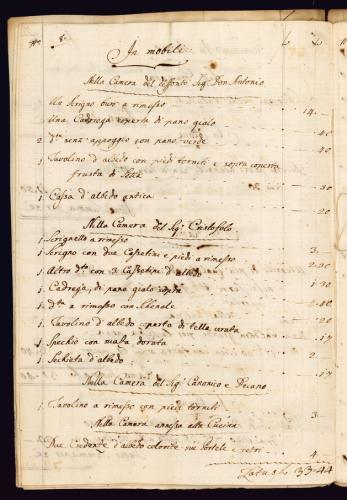 8.
In mobili
Nella Camera del deffonto Sig.r Don Antonio
Un Scrigno a rimesso 14.
Una Cadrega coperta di pano gialo .40
2 d.te senz'appoggio con pano verde .40
1 Tavolino d'albedo con piedi torniti e sopra coperta
frusta di .30
1. Cassa d'albedo antica .20
Nella Camera del Sig.r Cristofolo
1. Scrignello a rimesso 3.
1. Scrigno con due Cassetini e piedi a rimesso
1. Altro d.to con 3. Cassetini d'albedo
1. Cadrega, di pano gialo .30
1. d.ta a rimesso con
1. Tavolino d'albedo coperto di tella cerata .20
1. Spechio con dorata .17
1. Sechieta d'albedo 2.
Nella Camera del Sig.r Canonico e Decano .17
1 Tavolino a rimesso con piedi torniti
Nella Camera annessa alla Cucina 3.
Due Credenze d'albedo colorite sue Portele e vetri 4.
Latus 33-44